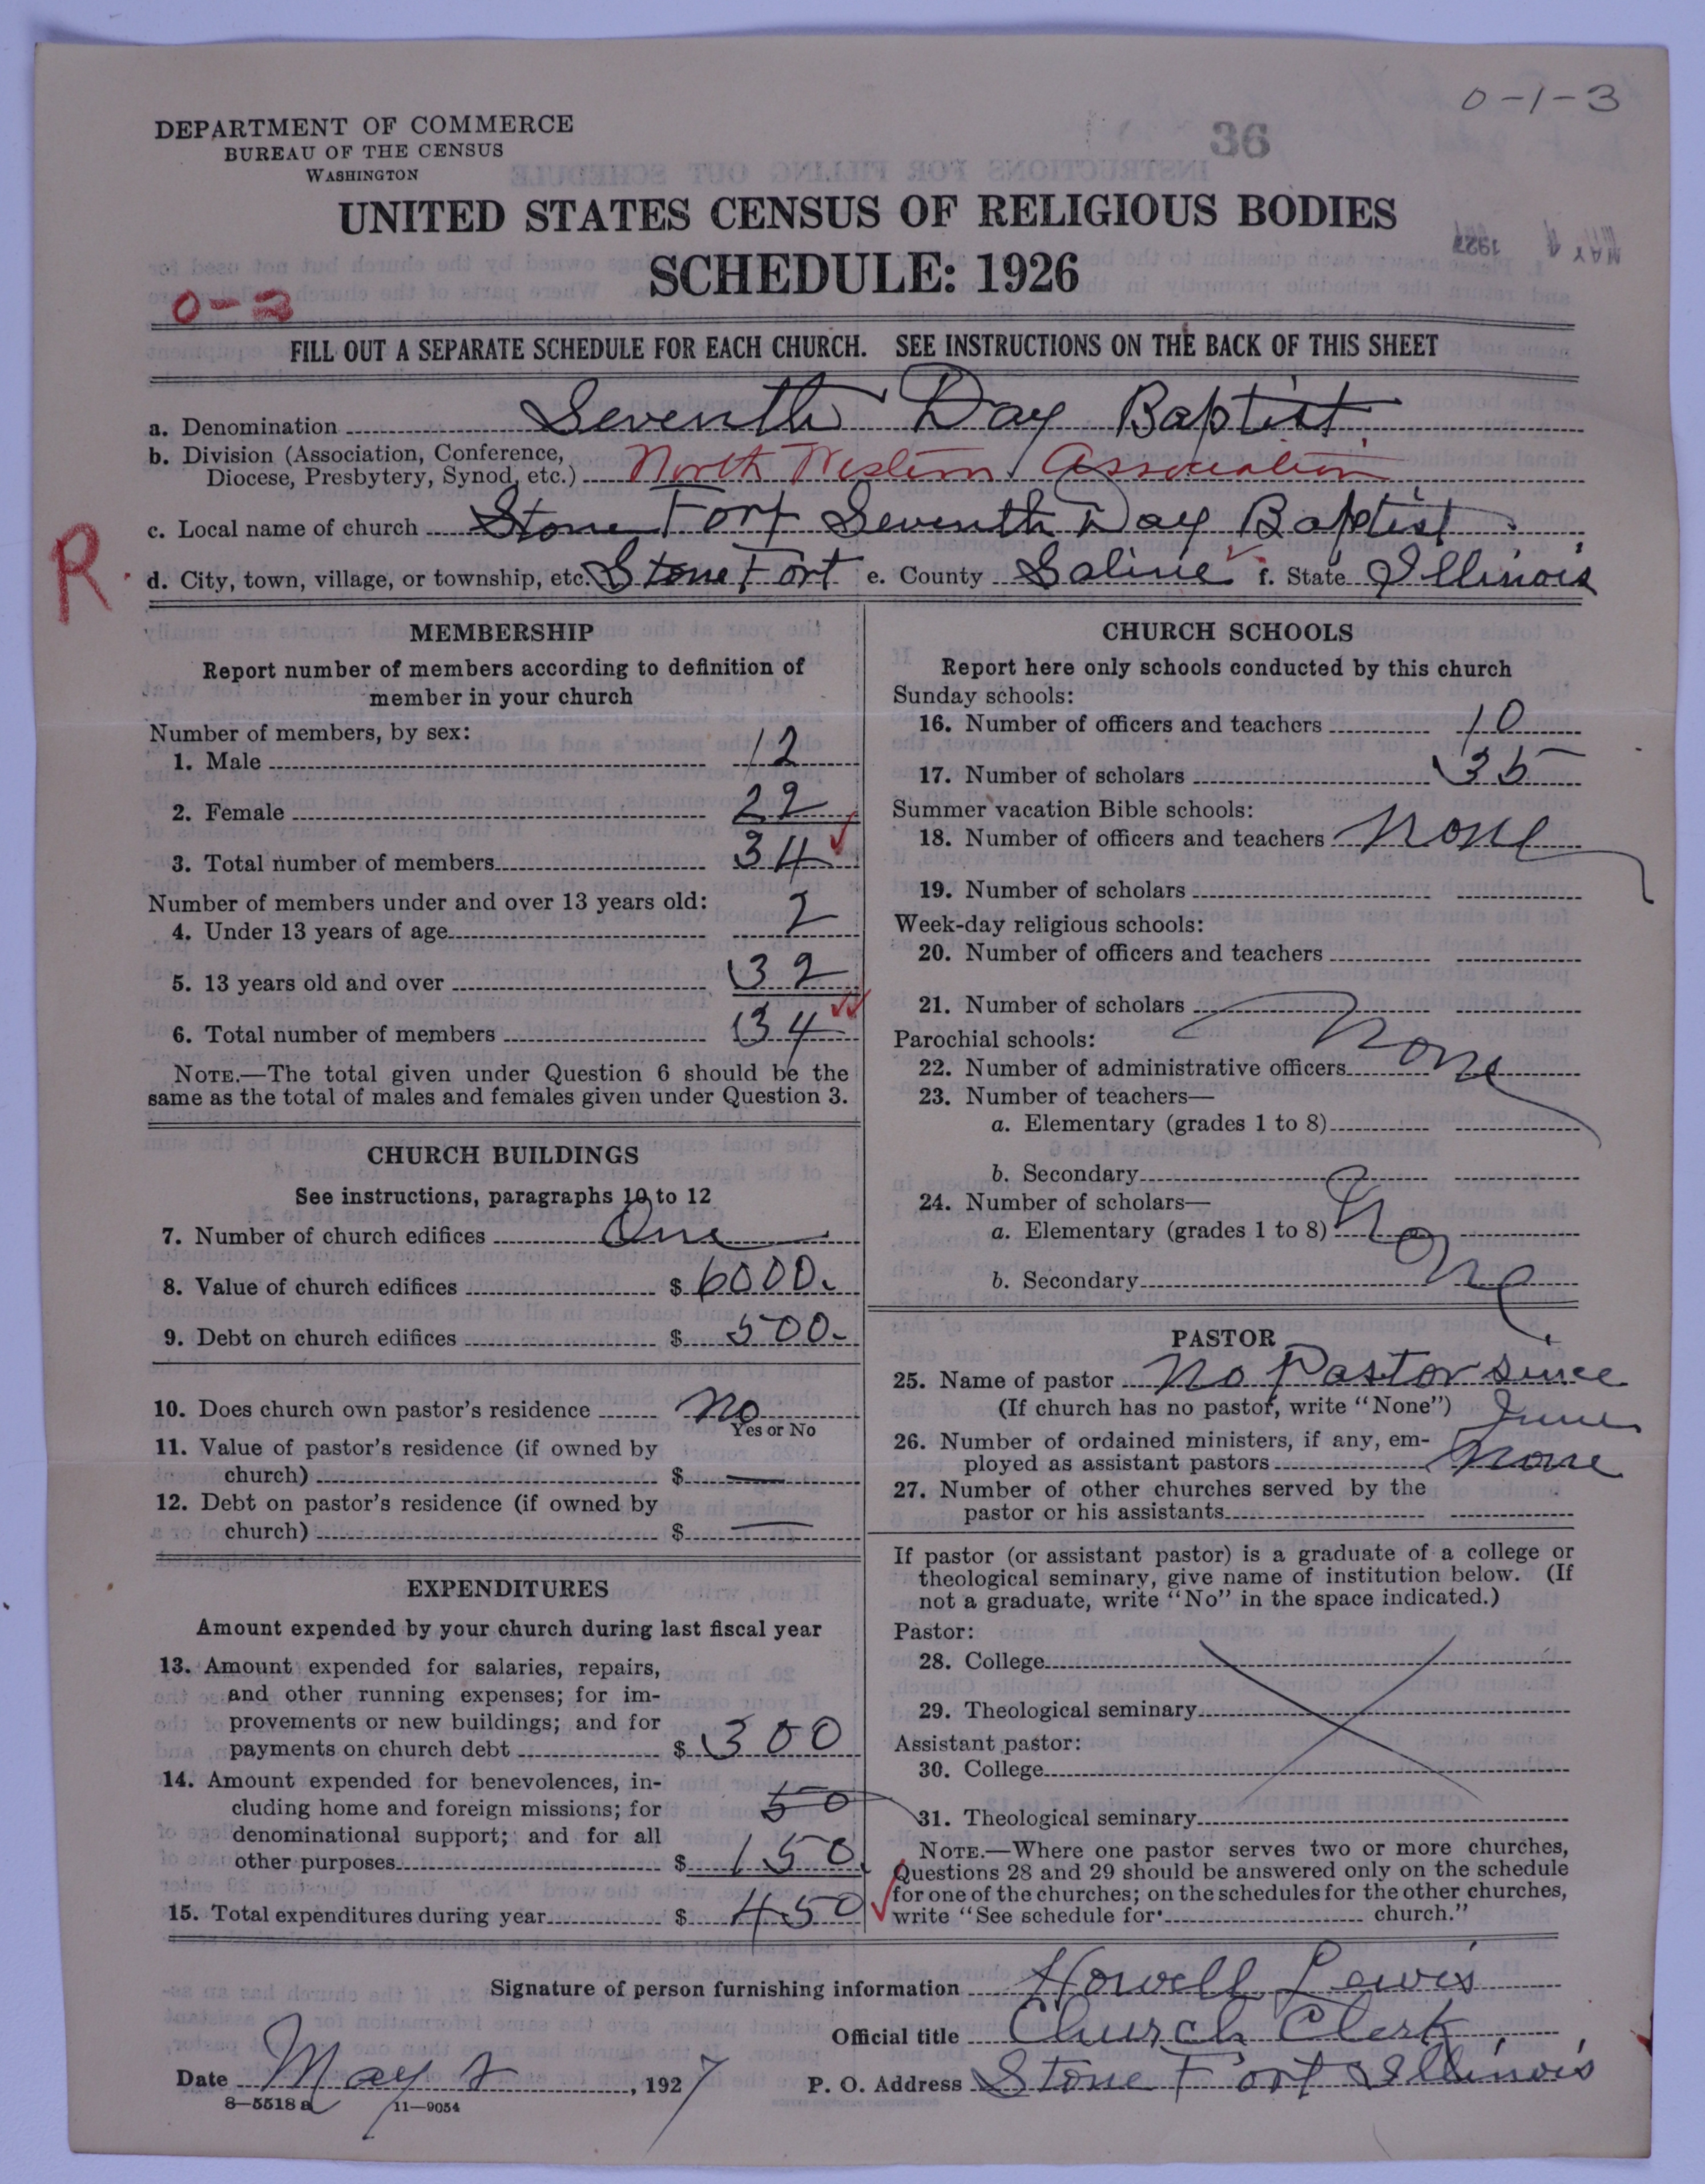 0-1-3
DEPARTMENT OF COMMERCE
BUREAU OF THE CENSUS
WASHINGTON
36
UNITED STATES CENSUS OF RELIGIOUS BODIES
SCHEDULE: 1926
MAY 4 1927
FILL OUT A SEPARATE SCHEDULE FOR EACH CHURCH. SEE INSTRUCTIONS ON THE BACK OF THIS SHEET
a. Denomination Seventh Day Baptist
b. Division (Association, Conference,
Diocese, Presbytery, Synod, etc.) North Western Association
c. Local name of church Stone Fort Seventh Day Baptist
R.
d. City, town, village, or township, etc. Stone Fort e. County Saline f. State Illinois
MEMBERSHIP
Report number of members according to definition of
member in your church
Number of members, by sex:
1. Male 12
2. Female 22
3. Total number of members 34
Number of members under and over 13 years old:
4. Under 13 years of age 2
5. 13 years old and over 32
6. Total number of members 34
NOTE.—The total given under Question 6 should be the
same as the total of males and females given under Question 3.
CHURCH BUILDINGS
See instructions, paragraphs 10 to 12
7. Number of church edifices One
8. Value of church edifices $ 6000.
9. Debt on church edifices $ 500.
10. Does church own pastor's residence No
Yes or No
11. Value of pastor's residence (if owned by
church) $ —
12. Debt on pastor's residence (if owned by
church) $ —
EXPENDITURES
Amount expended by your church during last fiscal year
13. Amount expended for salaries, repairs,
and other running expenses; for im-
provements or new buildings; and for
payments on church debt $ 300
14. Amount expended for benevolences, in-
cluding home and foreign missions; for 50
denominational support; and for all
other purposes $ 150
15. Total expenditures during year $ 450
CHURCH SCHOOLS
Report here only schools conducted by this church
Sunday schools:
16. Number of officers and teachers 10
17. Number of scholars 35
Summer vacation Bible schools:
18. Number of officers and teachers None
19. Number of scholars
Week-day religious schools:
20. Number of officers and teachers
21. Number of scholars
Parochial schools: None
22. Number of administrative officers
23. Number of teachers—
a. Elementary (grades 1 to 8)
b. Secondary
24. Number of scholars—
a. Elementary (grades 1 to 8) None
b. Secondary
PASTOR
25. Name of pastor No Pastor since
(If church has no pastor, write "None") June
26. Number of ordained ministers, if any, em-
ployed as assistant pastors None
27. Number of other churches served by the
pastor or his assistants
If pastor (or assistant pastor) is a graduate of a college or
theological seminary, give name of institution below. (If
not a graduate, write "No" in the space indicated.)
Pastor:
28. College
29. Theological seminary
Assistant pastor:
30. College
31. Theological seminary
NOTE.—Where one pastor serves two or more churches,
Questions 28 and 29 should be answered only on the schedule
for one of the churches; on the schedules for the other churches,
write "See schedule for church."
Signature of person furnishing information Howell Lewis
Official title Church Clerk
Date May 2, 1927 P. O. Address Stone Fort Illinois
8—5518 a 11—9054